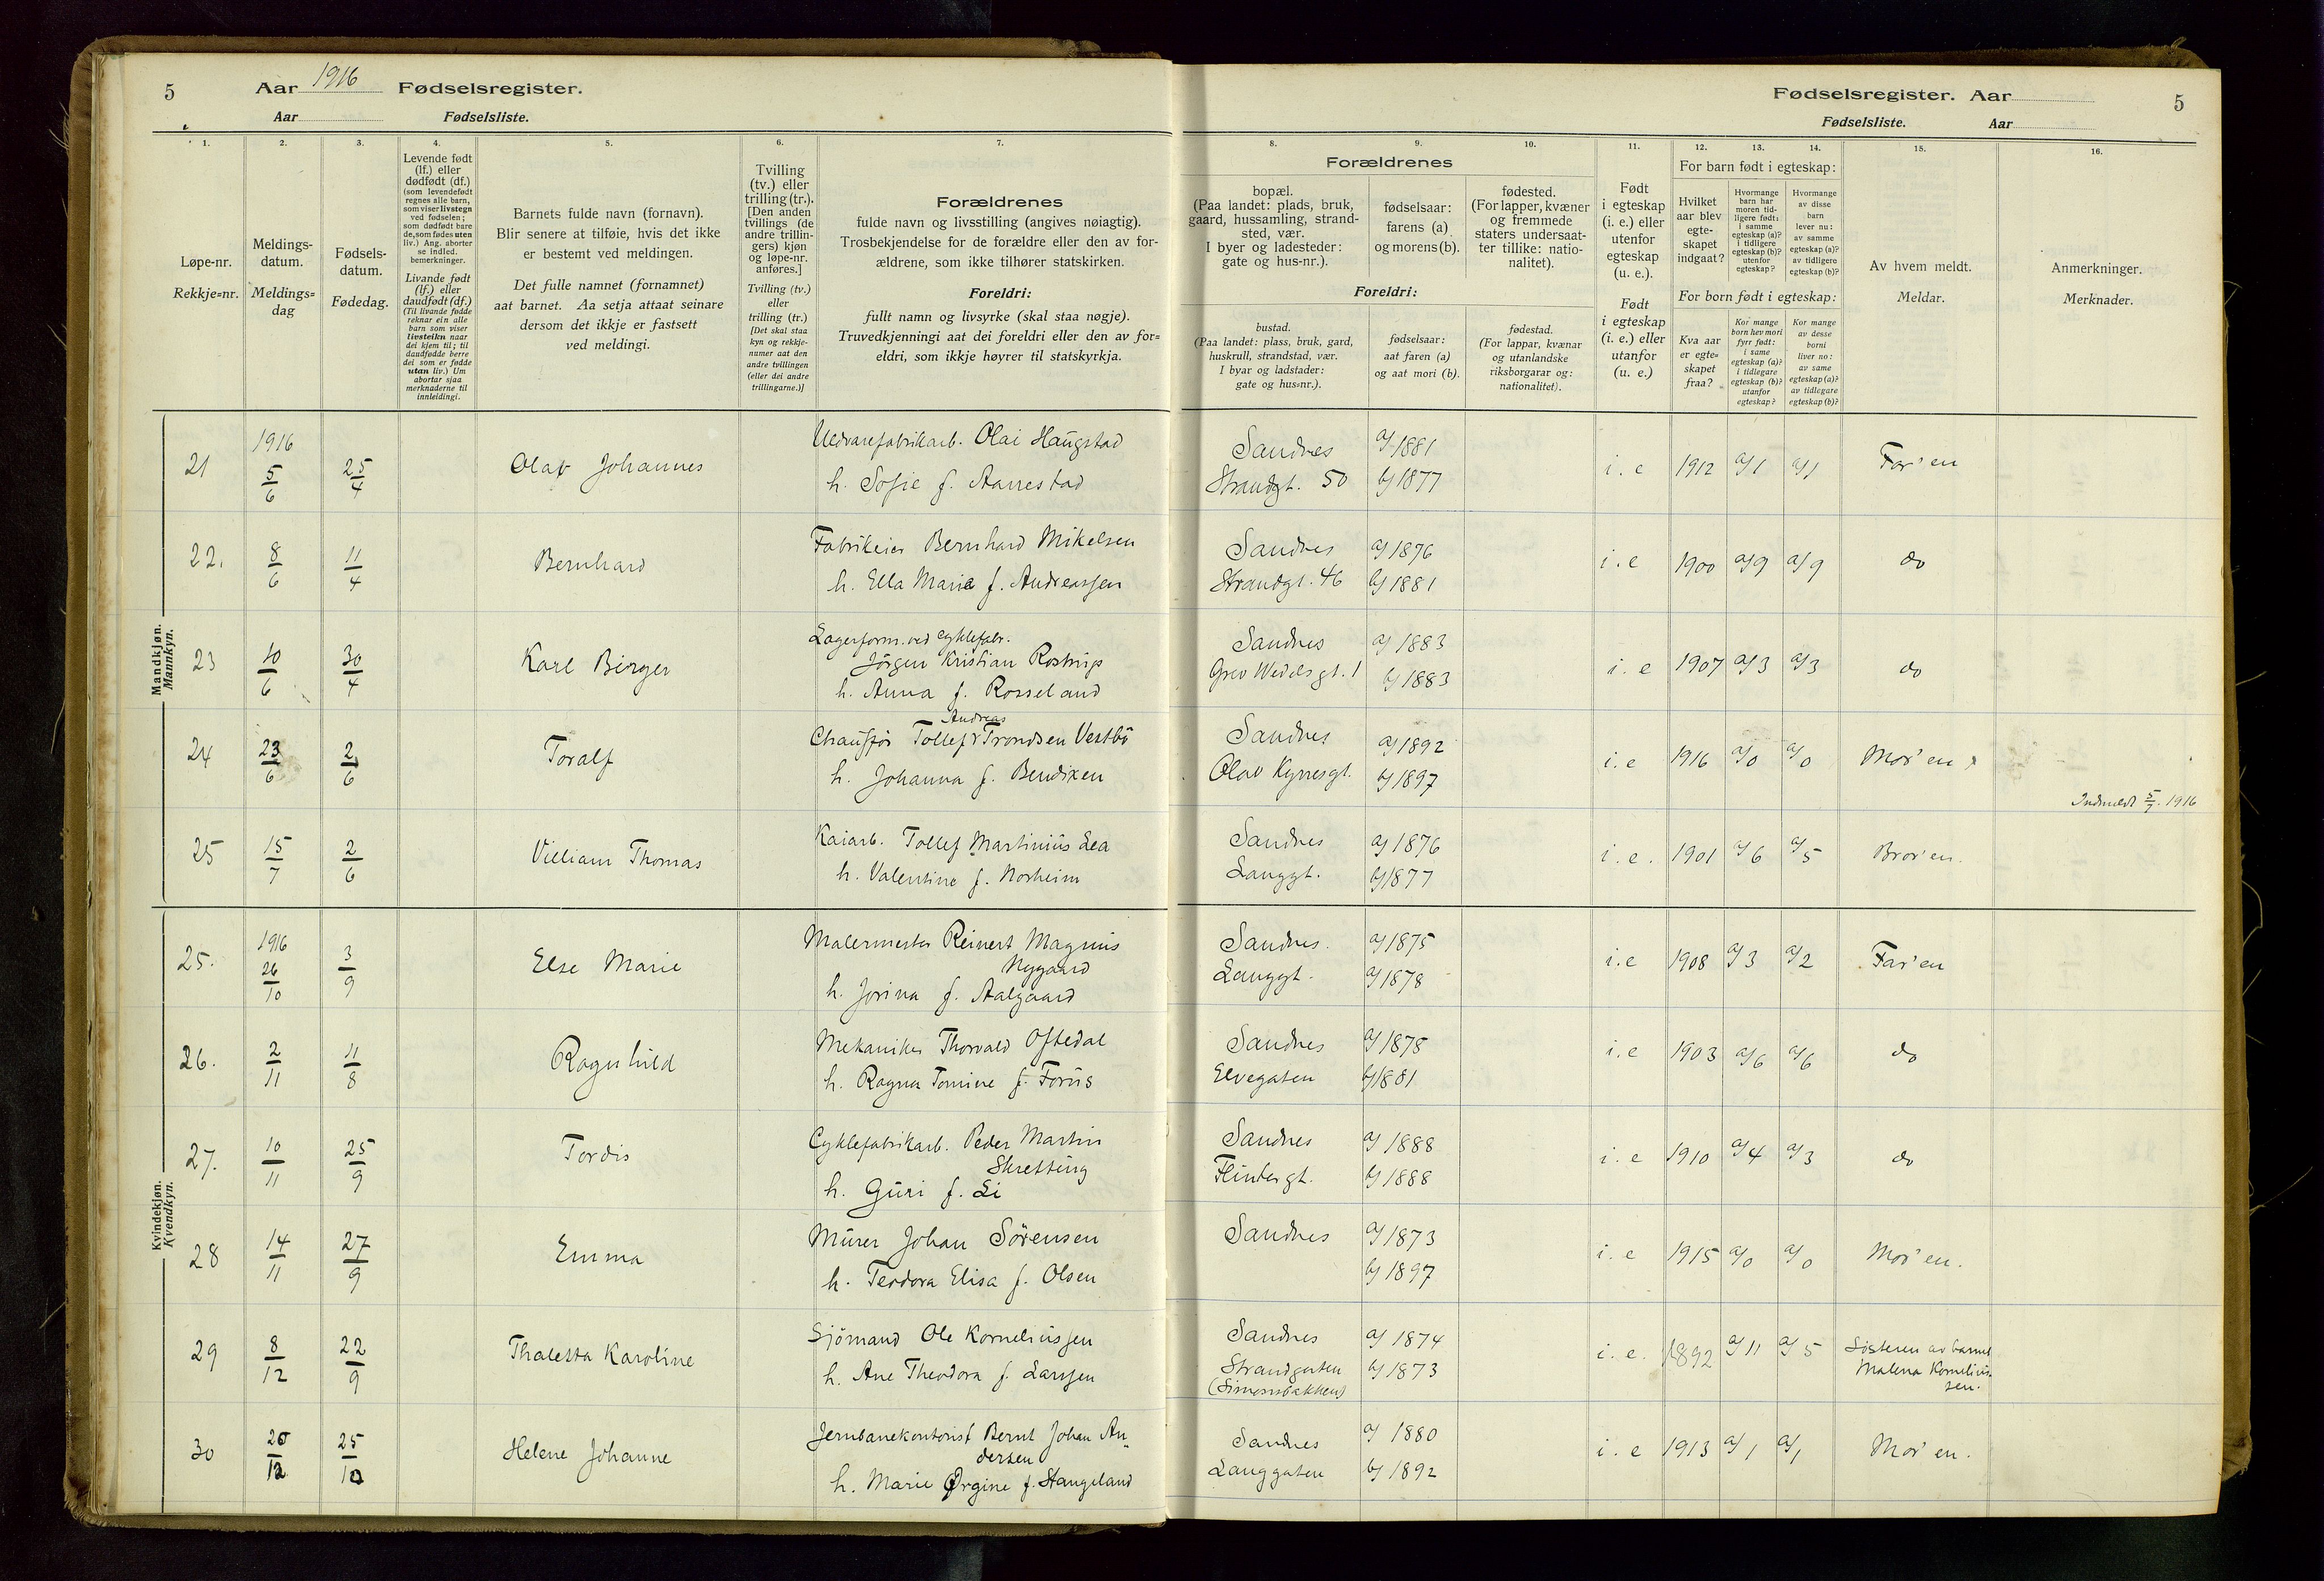 5 Aar 1916 Fødselsregister.
Aar Fødselsliste.
Fødselsregister. Aar 5
Fødselsliste. Aar
1. 2. 3. 4. 5. 6. 7. 8. 9. 10. 11. 12. 13. 14. 15. 16.
Løpe-nr.
Rekkje=nr.
Meldings-
datum.
Meldings=
dag
Fødsels-
datum.
Fødedag.
Levende født
(lf.) eller
dødfødt (df.)
(som levendefødt
regnes alle barn,
som viser livstegn
ved fødselen;
som dødfødt bare
de, som fødes uten
liv.) Ang. aborter
se indled.
bemerkninger.
Livande født
(lf.) eller
daudfødt (df.)
(Til livande fødde
reknar ein alle
barn som viser
livsteikn naar
dei kjem til; til
daudfødde berre
dei som er fødde
utan liv.) Um
abortar sjaa
merknaderne til
innleidingi.
Barnets fulde navn (fornavn).
Blir senere at tilføie, hvis det ikke
er bestemt ved meldingen.
Det fulle namnet (fornamnet)
aat barnet. Aa setja attaat seinare
dersom det ikkje er fastsett
ved meldingi.
Tvilling
(tv.) eller
trilling (tr.).
[Den anden
tvillings (de
andre trillin-
gers) kjøn
og løpe-nr.
anføres.]
Tvilling (tv.)
eller
trilling (tr.)
[Det skal staa
kyn og rekkje-
numer aat den
andre tvillingen
(eller dei andre
trillingarne.)]
Forældrenes
fulde navn og livsstilling (angives nøiagtig).
Trosbekjendelse for de forældre eller den av for-
ældrene, som ikke tilhører statskirken.
Foreldri:
fullt namn og livsyrke (skal staa nøgje).
Truvedkjenningi aat dei foreldri eller den av for=
eldri, som ikkje høyrer til statskyrkja.
Forældrenes
bopæl.
(Paa landet: plads, bruk,
gaard, hussamling, strand-
sted, vær.
I byer og ladesteder:
gate og hus-nr.).
fødselsaar:
farens (a)
og morens (b).
fødested.
(For lapper, kvæner
og fremmede
staters undersaat-
ter tillike: natio-
nalitet).
Foreldri:
bustad.
(Paa landet: plass, bruk, gard,
huskrull, strandstad, vær.
I byar og ladstader:
gate og hus=nr.).
fødselsaar:
aat faren (a)
og aat mori (b).
fødestad.
(For lappar, kvænar
og utanlandske
riksborgarar og:
nationalitet).
Født
i egteskap
(i. e.) eller
utenfor
egteskap
(u. e.).
Født
i egteskap
(i. e.) eller
utanfor
(u. e.)
For barn født i egteskap:
Hvilket
aar blev
egte-
skapet
indgaat?
Hvormange
barn har
moren tid-
ligere født:
i samme
egteskap (a)?
i tidligere
egteskap (b)?
utenfor
egteskap?
Hvormange
av disse
barn
lever nu:
av samme
egteskap (a)?
av tidligere
egteskap (b)?
For born født i egteskap:
Kva aar
er egte=
skapet
fraa?
Kor mange
born hev mori
fyrr født:
i same
egteskap (a)?
i tidlegare
egteskap (b)?
utanfor
egteskap?
Kor mange
av desse
borni
liver no:
av same
egteskap (a)?
av tidlegare
egteskap (b)?
Av hvem meldt.
Meldar.
Anmerkninger.
Merknader.
Mandkjøn.
Mannkyn.
1916
21 5/6 25/4 Olaf Johannes Uldvarefabrikarb. Olai Haugstad
h. Sofie f. Aarrestad
Sandnes a/1881
Strandgt. 50 b/1877 i. e 1912 a/1 a/1 Far'en
22. 8/6 11/4 Bernhard Fabrikeier Bernhard Mikelsen
h. Ella Marie f. Andreassen
Sandnes a/1876
Strandgt. 46 b/1881 i. e 1900 a/9 a/9 do
23 10/6 30/4 Karl Birger Lagerform. ved cyklefabr.
Jörgen Kristian Rostrup
h. Anna f. Rosseland
Sandnes a/1883
Grev Wedels gt. 1 b/1883 i. e 1907 a/3 a/3 do
24 23/6 2/6 Toralf Andreas
Chaufför Tollef Trondsen Vestbö
h. Johanna f. Bendixen
Sandnes a/1892
Olav Kyrresgt. b/1897 i. e 1916 a/0 a/0 Mor'en
Indmeldt 5/7. 1916
25 15/7 2/6 Villiam Thomas Kaiarb. Tollef Martinius Lea
h. Valentine f. Norheim
Sandnes a/1876
Langgt. b/1877 i. e. 1901 a/6 a/5 Bror'en.
Kvindekjøn.
Kvendkyn.
1916
25. 26/10 3/9 Else Marie Malermester Reinert Magnus
Nygaard
h. Jorina f. Aalgaard
Sandnes. a/1875
Langgt. a/1878 i. e 1908 a/3 a/2 Far'en
26. 2/11 11/8 Ragnhild Mekaniker Thorvald Oftedal
h. Ragna Tomine f. Forus
Sandnes a/1878
Elvegaten b/1881 i. e 1903 a/6 a/6 do
27. 10/11 25/9 Tordis Cyklefabrikarb. Peder Martin
Skretting
h. Guri f. Li
Sandnes a/1888
Flintergt. b/1888 i. e 1910 a/4 a/3 do
28 14/11 27/9 Emma Murer Johan Sörensen
h. Teodora Elisa f. Olsen
Sandnes a/1873
b/1897 i. e 1915 a/0 a/0 Mor'en.
29 8/12 22/9 Thaletta Karoline Sjömand Ole Korneliussen
h. Ane Theodora f. Larssen
Sandnes a/1874
Strandgaten b/1873
(Simonsbakken) i. e. 1892 a/11 a/5 Søsteren av barnet
Malena Kornelius-
sen.
30 20/12 25/10 Helene Johanne Jernbanekontorist Bernt Johan An-
dersen
h. Marie Ørgine f. Stangeland
Sandnes a/1880
Langgaten b/1892 i. e 1913 a/1 a/1 Mor'en.